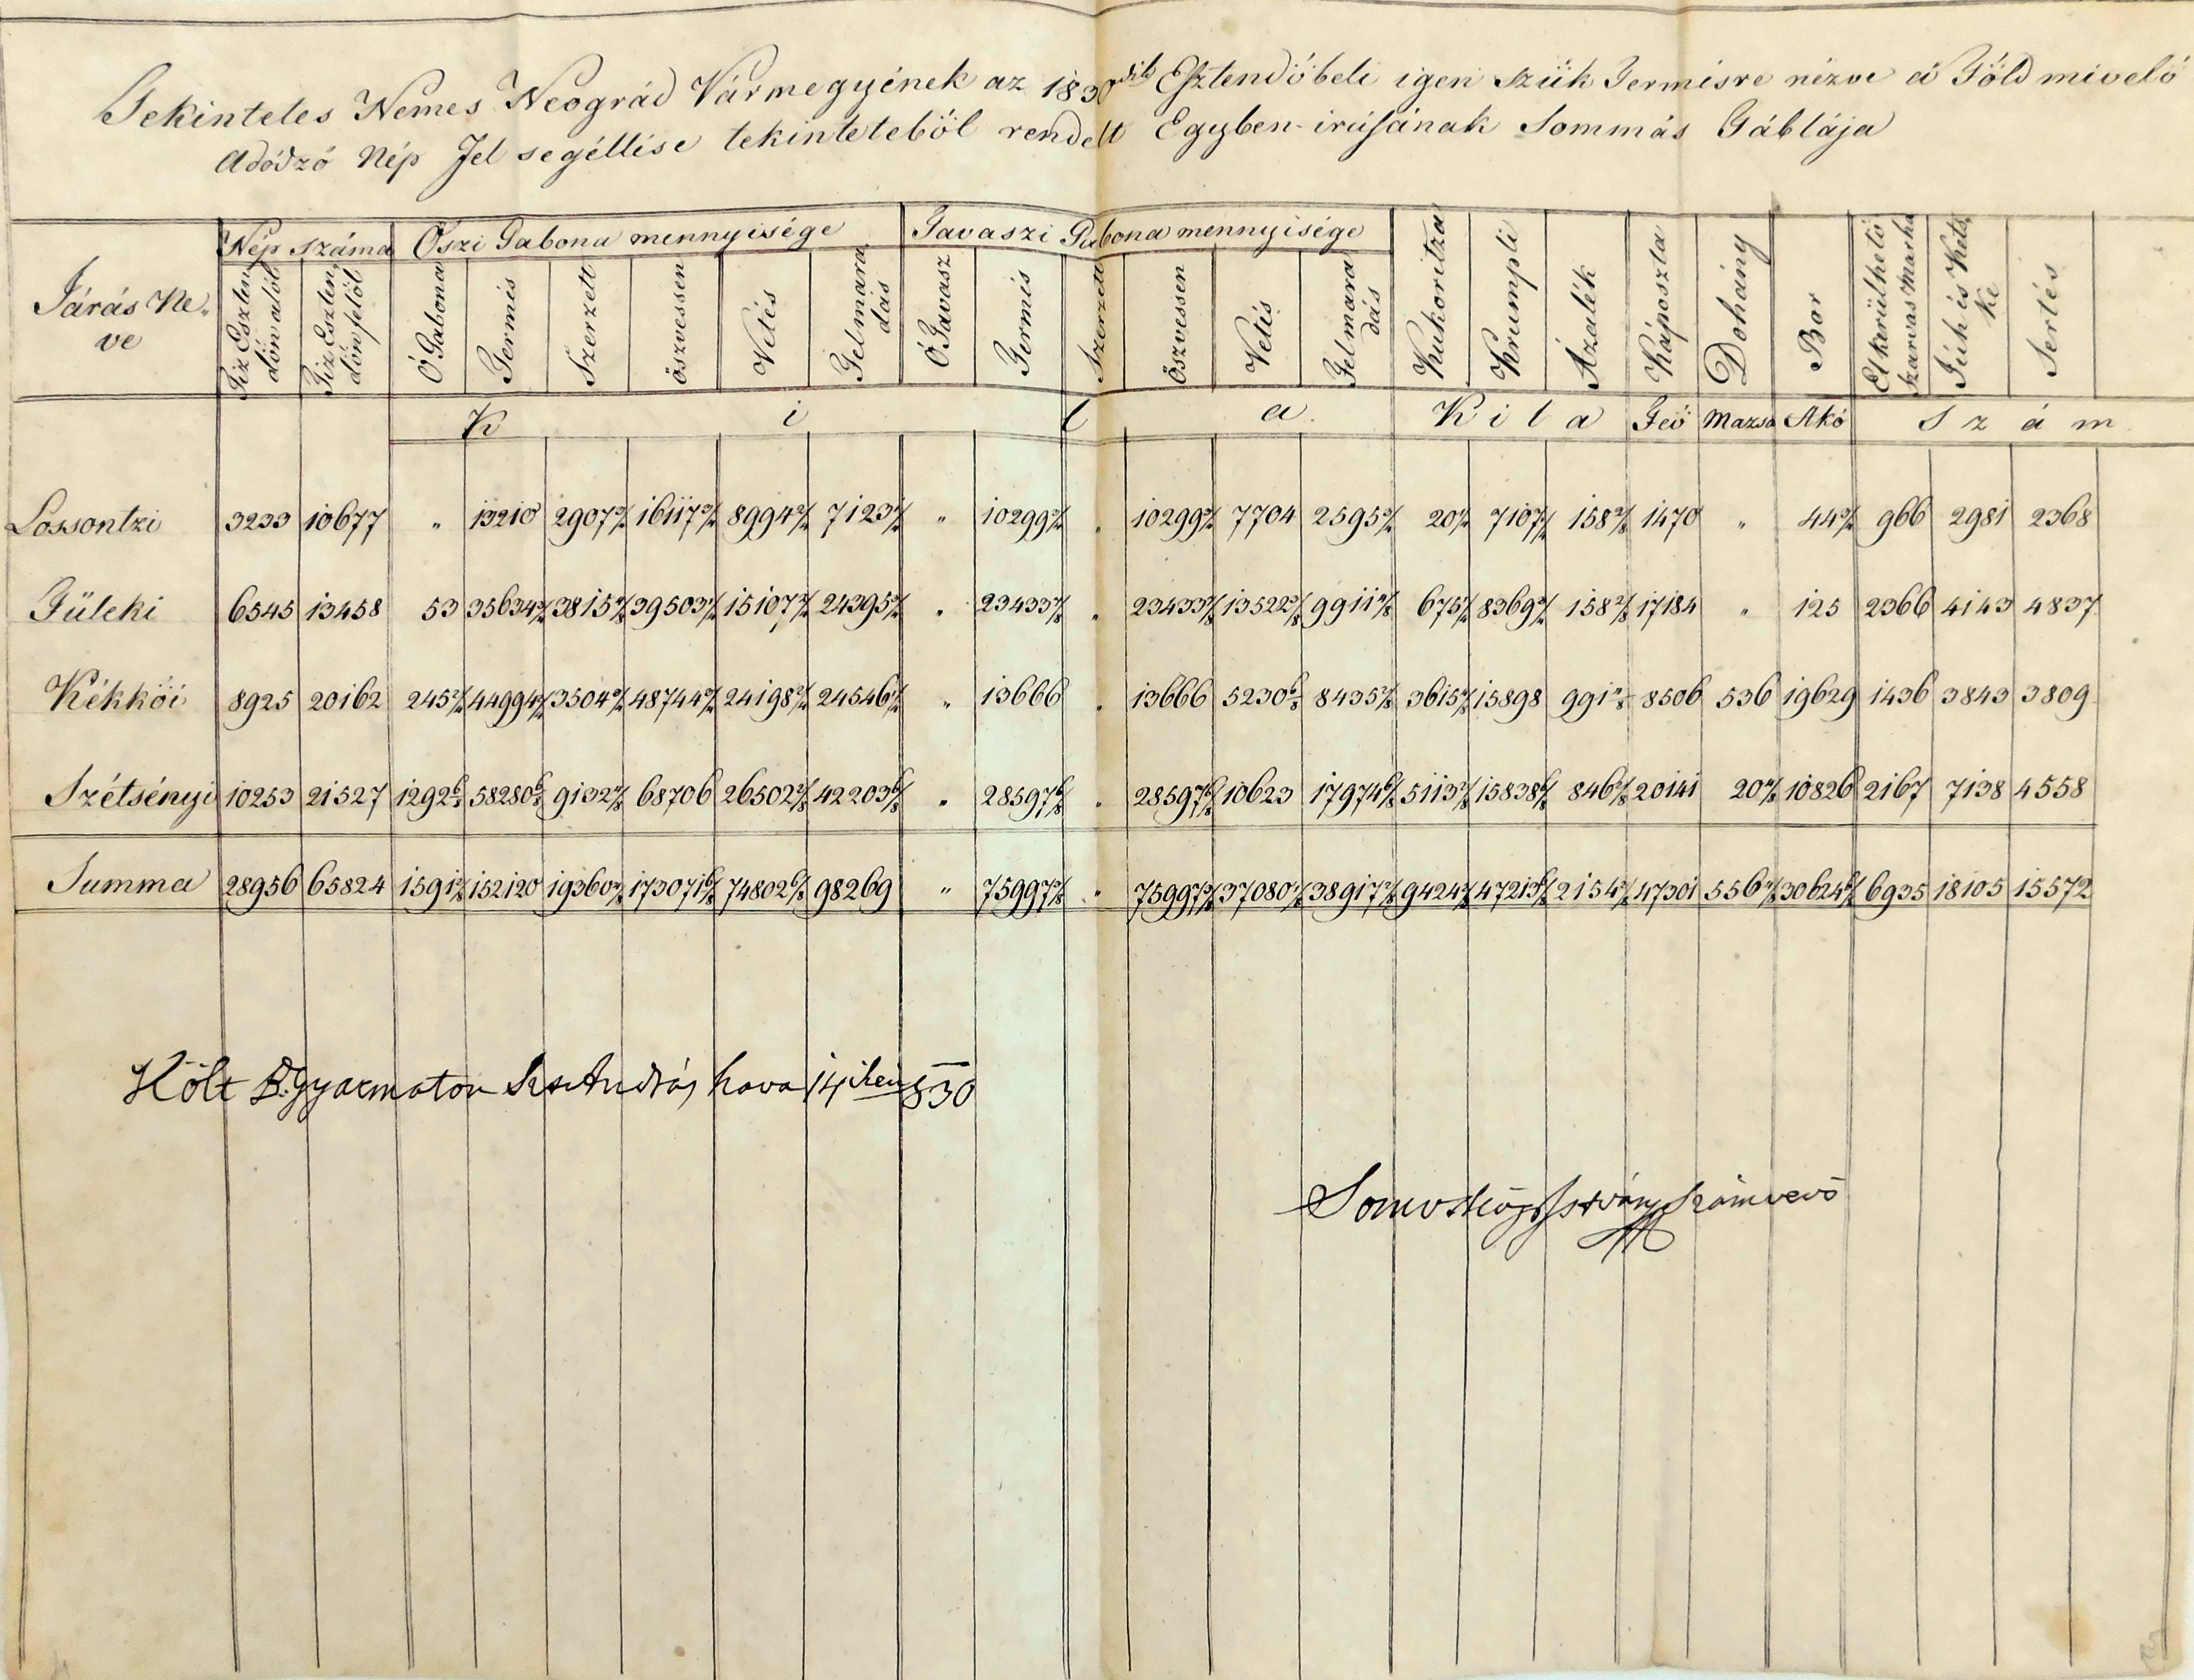 Tekintetes Nemes Neográd Vármegyének az 1830dik Esztendőbeli igen szük Termésre nézve a' Föld mivelő
Adódzó Nép Fel segéllése tekintetéből rendelt Egyben-irásának Sommás Táblája
Járás Neve | Nép száma | Őszi Gabona mennyisége | Tavaszi Gabona mennyisége
Tiz Esztendőn alól | Tiz Esztendőn felől | Ó Gabona | Termés | Szerzett | öszvessen | Vetés | Felmaradás | Ó Tavasz | Termés | Szerzett | Öszvessen | Vetés | Felmaradás | Kukoritza | Krumpli | Ázalék | Káposzta | Dohány | Bor | El kerülhető Szarvas Marha | Juh és Kets ke | Sertés
K i l a | K i l a | Feő | Mazsa | Akó | S z á m
Lossontzi | 3233 | 10677 | " | 13210 | 2907 | 16117 | 8994 | 7123 | " | 10299 | " | 10299 | 7704 | 2595 | 20 | 7107 | 158 | 1470 | " | 44 | 966 | 2981 | 2368
Füleki | 6545 | 13458 | 53 | 35634 | 3815 | 39503 | 15107 | 24395 | " | 23433 | " | 23433 | 13522 | 9911 | 675 | 8369 | 158 | 17184 | " | 125 | 2366 | 4143 | 4837
Kékkői | 8925 | 20162 | 245 | 44994 | 3504 | 48744 | 24198 | 24546 | " | 13666 | " | 13666 | 5230 6/8 | 8435 | 3615 | 15898 | 991 | 8506 | 536 | 19629 | 1436 | 3843 | 3809
Szétsényi | 10253 | 21527 | 1292 6/8 | 58280 6/8 | 9132 | 68706 | 26502 | 42203 6/8 | " | 28597 6/8 | " | 28597 6/8 | 10623 | 17974 6/8 | 5113 | 15838 6/8 | 846 | 20141 | 20 | 10826 | 2167 | 7138 | 4558
Summa | 28956 | 65824 | 1591 | 152120 | 19360 | 173071 6/8 | 74802 6/8 | 98269 | " | 75997 | " | 75997 | 37080 | 38917 | 9424 | 47213 6/8 | 2154 | 47301 | 556 | 30624 6/8 | 6935 | 18105 | 15572
Költ B. Gyarmaton Szt András hava 14iken 830
István Számvevő